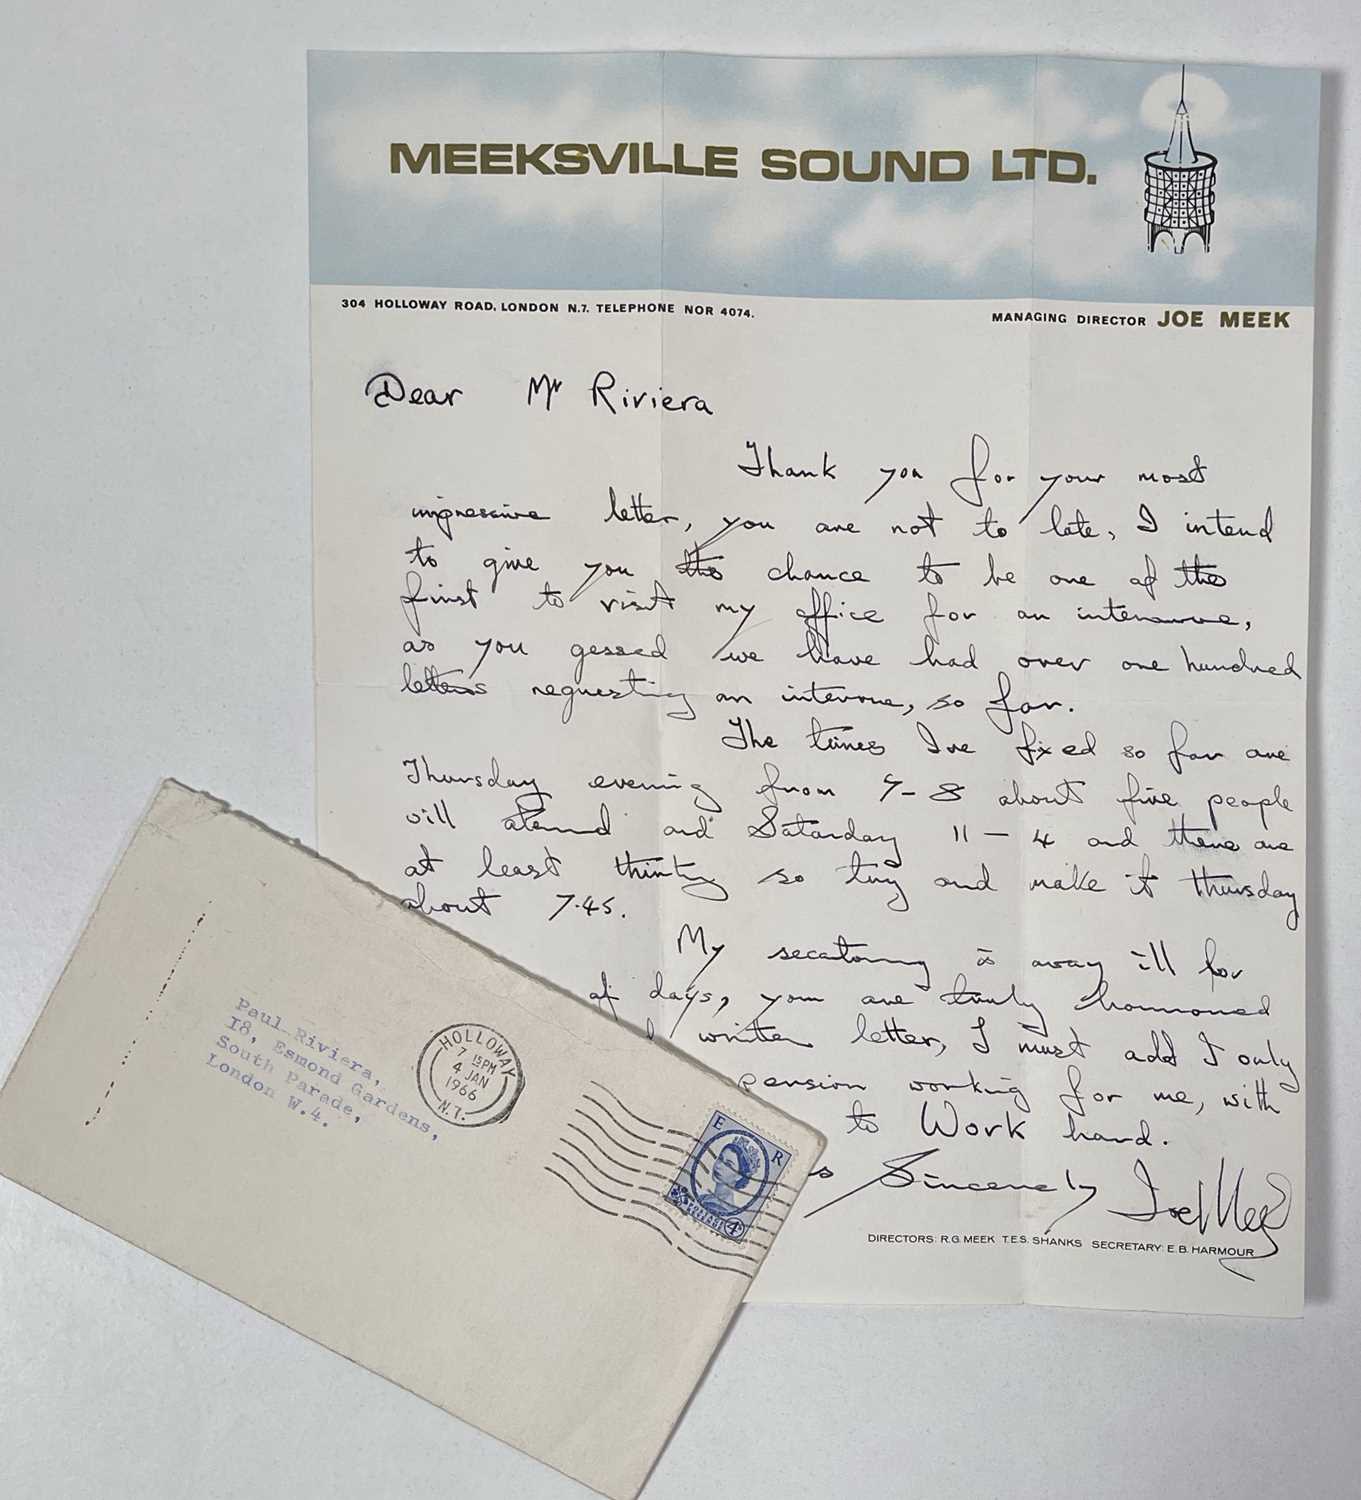 MEEKSVILLE SOUND LTD.
304 HOLLOWAY ROAD, LONDON N.7. TELEPHONE NOR 4074.
MANAGING DIRECTOR JOE MEEK
Dear Mr Riviera
Thank you for your most
impressive letter, you are not to late, I intend
to give you the chance to be one of the
first to visit my office for an
as you gessed we have had over one hundred
letters requesting an so far.
The times I've fixed so far are
Thursday evening from 7-8 about five people
will atend and Saturday 11 - 4 and there are
at least thirty so try and make it thursday
about 7.45.
My is away ill for
of days, your are truly
written letter, I must add I only
pension working for me, with
to Work hard.
s Sincerely Joe Meek
DIRECTORS: R.G. MEEK T.E.S. SHANKS SECRETARY: E.B. HARMOUR
Paul Riviera,
18, Esmond Gardens,
South Parade,
London W.4.
HOLLOWAY
7 15PM
4 JAN
1966
N.7.
E R
POSTAGE
REVENUE
4D